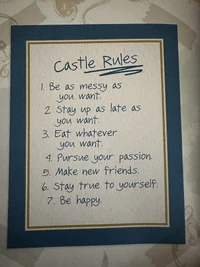 Castle Rules
1. Be as messy as
you want.
2. Stay up as late as
you want.
3. Eat whatever
you want.
4. Pursue your passion.
5. Make new friends.
6. Stay true to yourself.
7. Be happy.